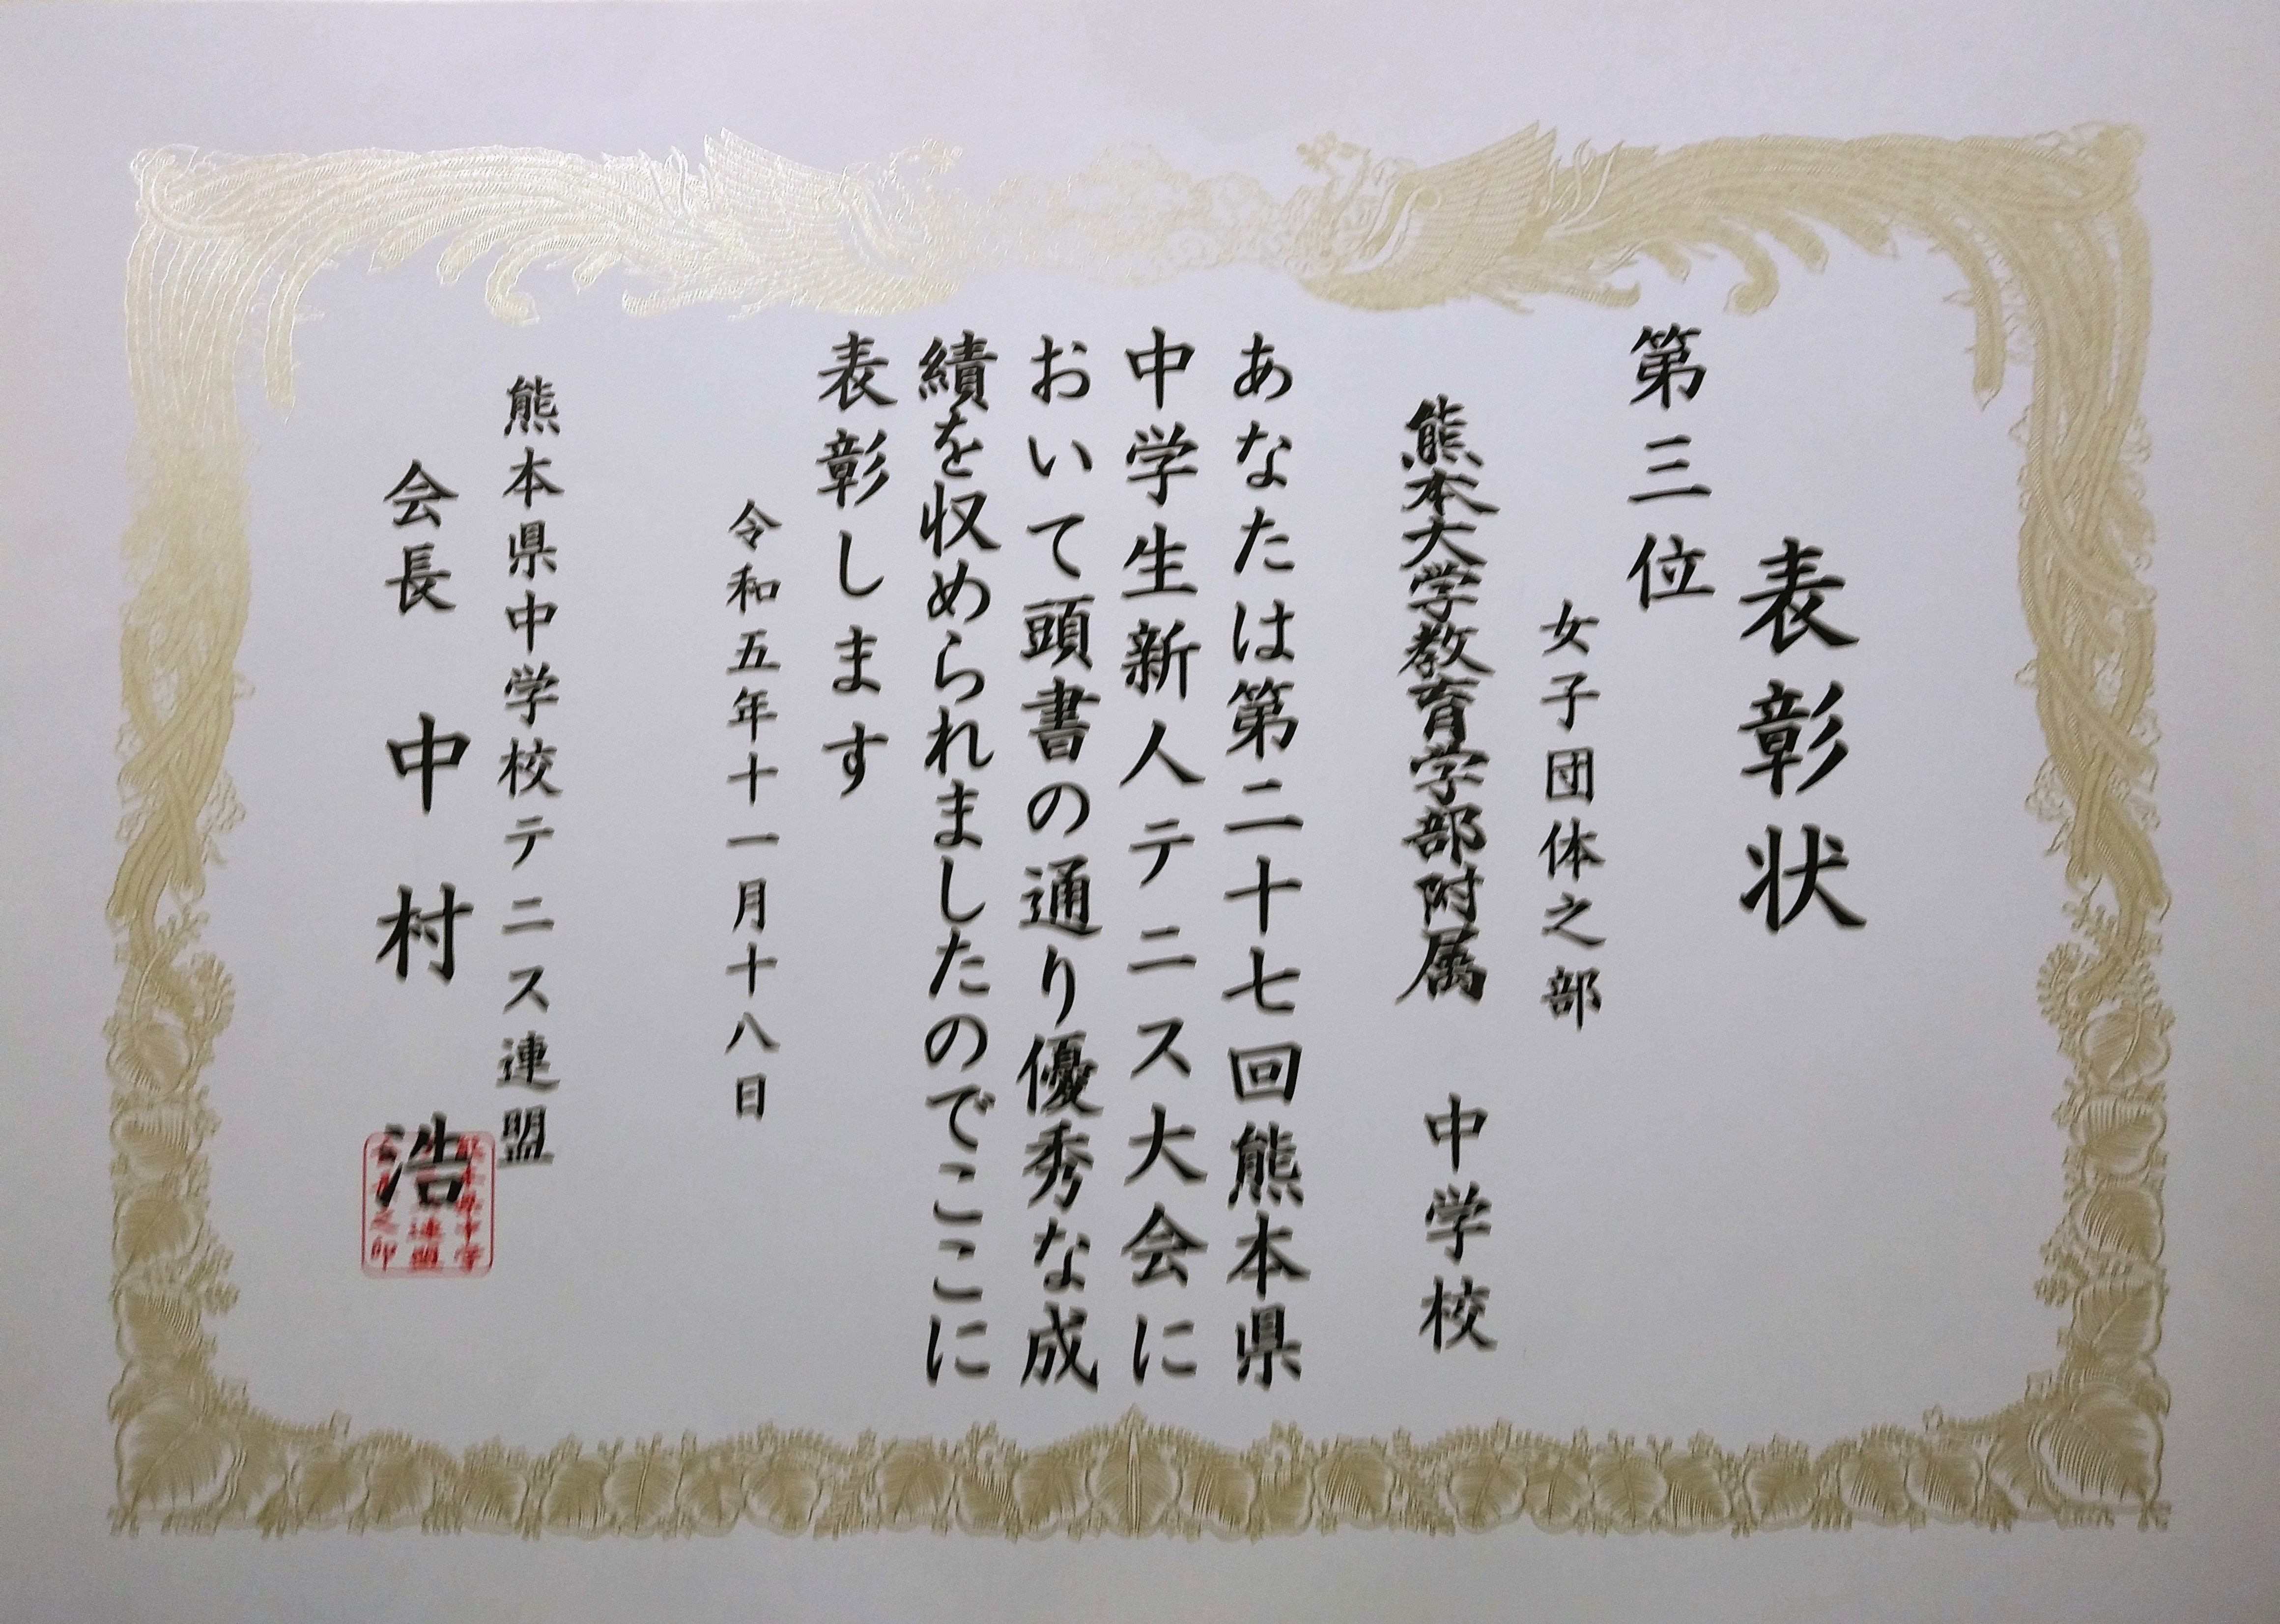 表彰状
第三位
女子団体之部
熊本大学教育学部附属 中学校
あなたは第二十七回熊本県
中学生新人テニス大会に
おいて頭書の通り優秀な成
績を収められましたのでここに
表彰します
令和五年十一月十八日
熊本県中学校テニス連盟
会長 中村 浩